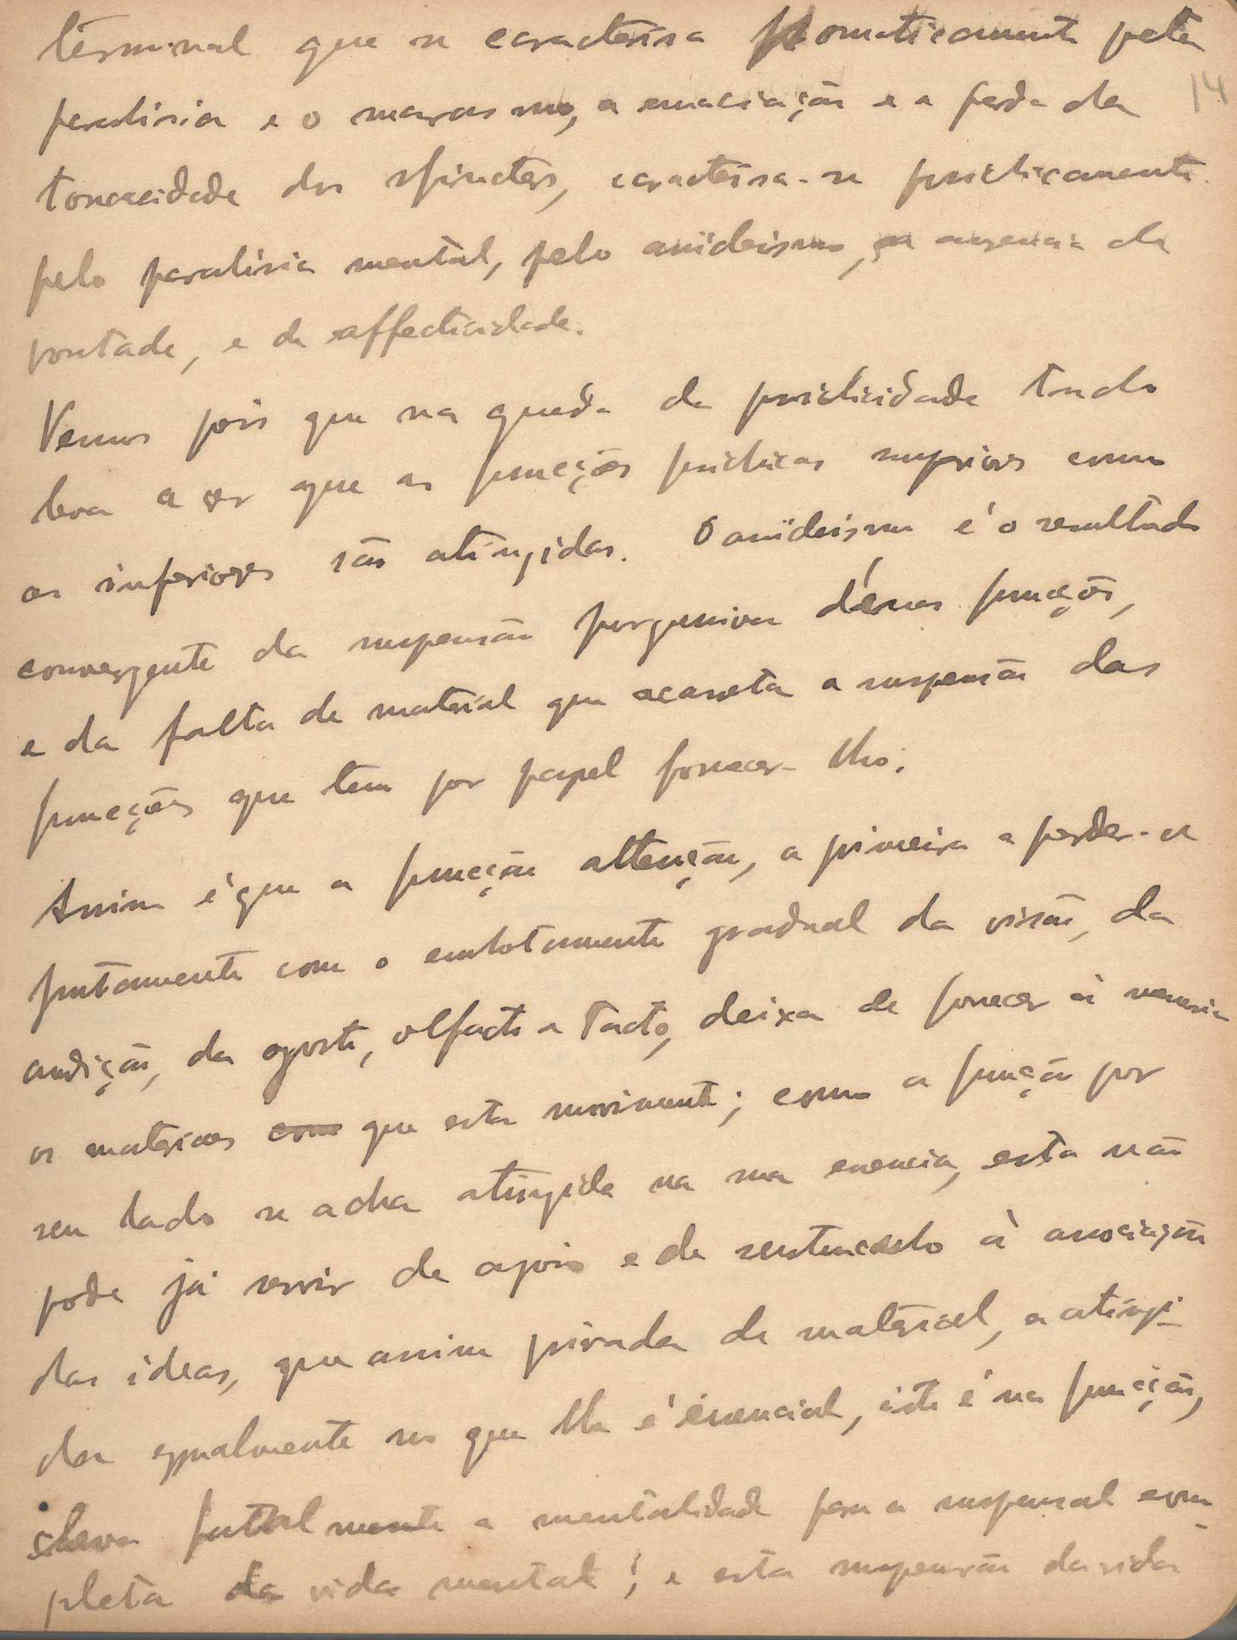 terminal que se caracterisa somaticamente pela
14
paralisia e o marasmo, a emaciação e a perda da
tonacidade dos sfincters, caracterisa-se psichicamente
pelo paralisia mental, pelo anideismo, a ausencia da
vontade, e da affectividade.
Vemos pois que na queda da psichicidade tudo
leva a ver que as funcções psichicas superiores como
as inferiores são atingidas. O anideismo é o resultado
convergente da suspensão progressiva d'éssas funcções,
e da falta de material que acarreta a suspensão das
funcções que tem por papel fornecer-lho.
Assim é que a funcção attenção, a primeira a perder-se
juntamente com o embotamento gradual da visão, da
audição, do gosto, olfacto e tacto, deixa de fornecer á memoria
os materiaes com que esta movimenta; como a função por
seu lado se acha atingida na sua essencia, esta não
pode já servir de apoio e de sustentaculo á associação
das ideas, que assim privada de material, e atingi-
da egualmente no que lhe é éssencial, isto é na funcção,
leva fatalmente a mentalidade para a suspensal com-
pleta da vida mental; e esta suspensão da vida